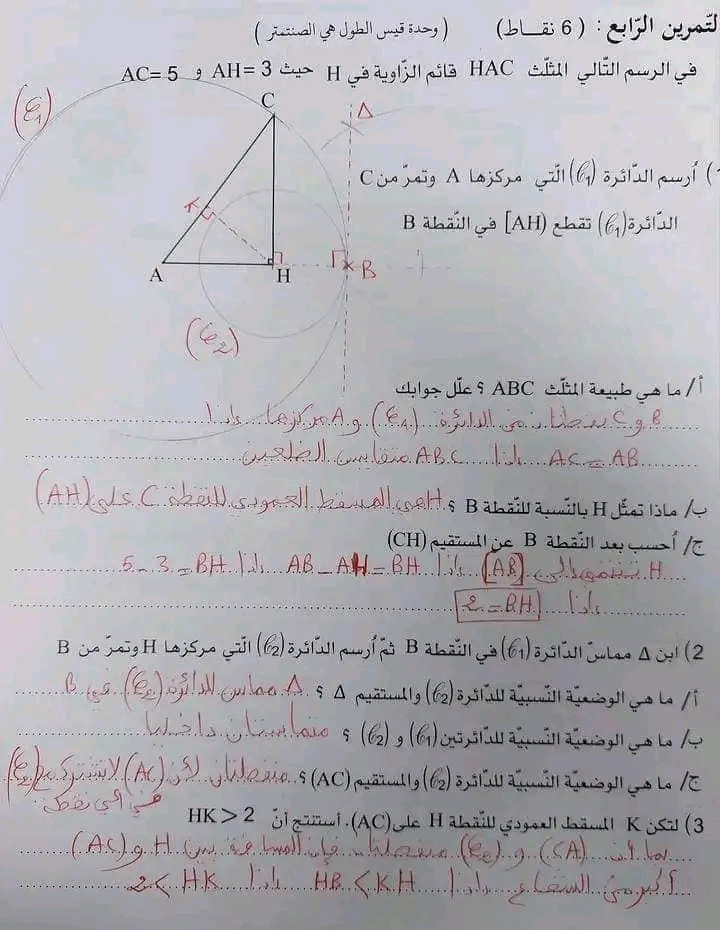 التمرين الرّابع : ( 6 نقــاط) ( وحدة قيس الطول هي الصنتمتر )
في الرسم التّالي المثلّث HAC قائم الزّاوية في H حيث AH= 3 و AC= 5
(C₁)
C
Δ
K
A
H
B
(C₂)
1) أرسم الدّائرة (C₁) الّتي مركزها A وتمرّ من C
الدّائرة (C₁) تقطع [AH) في النّقطة B
أ/ ما هي طبيعة المثلّث ABC ؟ علّل جوابك
B و C نقطتان من الدائرة (C₁) و A مركزها إذا
AC = AB إذا ABC متقايس الضلعين
ب/ ماذا تمثّل H بالنّسبة للنّقطة B ؟ H هي المسقط العمودي للنقطة C على (AH)
ج/ أحسب بعد النّقطة B عن المستقيم (CH)
H تنتمي إلى [AB] إذا AB - AH = BH إذا BH = 3 - 5
إذا BH = 2
2) ابن Δ مماسّ الدّائرة (C₁) في النّقطة B ثمّ أرسم الدّائرة (C₂) الّتي مركزها H وتمرّ من B
أ/ ما هي الوضعيّة النّسبيّة للدّائرة (C₂) والمستقيم Δ ؟ Δ مماس للدائرة (C₂) في B
ب/ ما هي الوضعيّة النّسبيّة للدّائرتين (C₁) و (C₂) ؟ متماستان داخليا
ج/ ما هي الوضعيّة النّسبيّة للدّائرة (C₂) والمستقيم (AC) ؟ منفصلتان لأن (AC) لا تشترك مع (C₂)
في أي نقطة
3) لتكن K المسقط العمودي للنّقطة H على (AC). أستنتج أنّ HK > 2
بما أن (CA) و (C₂) منفصلتان فإن المسافة بين H و (AC)
أكبر من الشعاع إذا HB < KH إذا 2 < HK